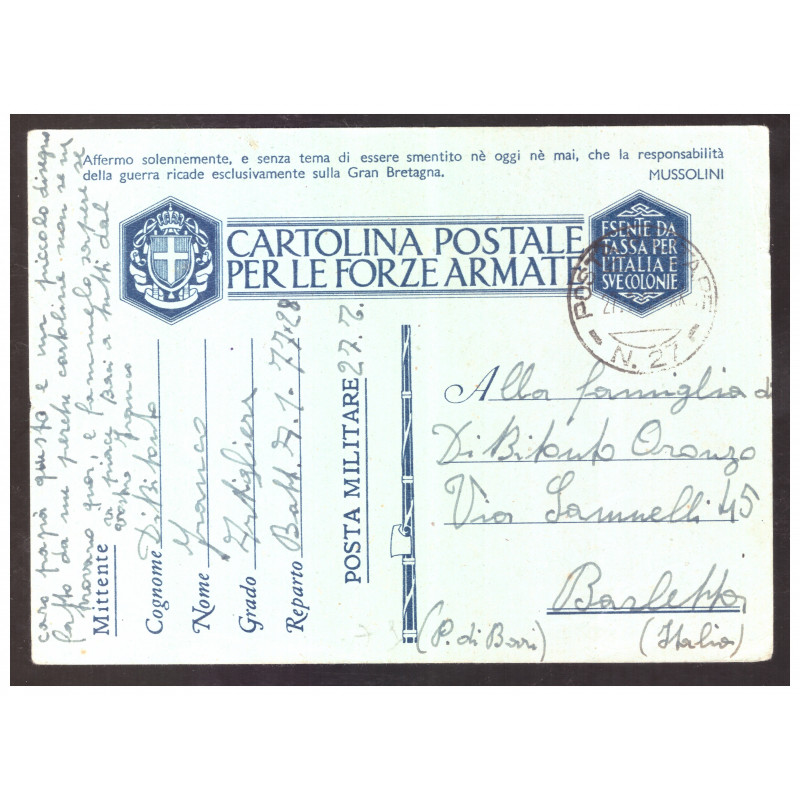 Affermo solennemente, e senza tema di essere smentito nè oggi nè mai, che la responsabilità
della guerra ricade esclusivamente sulla Gran Bretagna.
MUSSOLINI
CARTOLINA POSTALE
PER LE FORZE ARMATE
ESENTE DA
TASSA PER
L'ITALIA E
SVE COLONIE
N. 27
Alla famiglia di
Di Bitonto Oronzo
Via Samnelli 45
Barletta
(P. di Bari)
(Italia)
caro papà questo è un piccolo disegno
fatto da me perchè cartoline non se ne
trovano quà, e fammelo sapere se
vi piace Baci a tutti dal
vostro Franco
Mittente
Cognome Di Bitonto
Nome Franco
Grado Artigliere
Reparto Batt.
POSTA MILITARE 27.